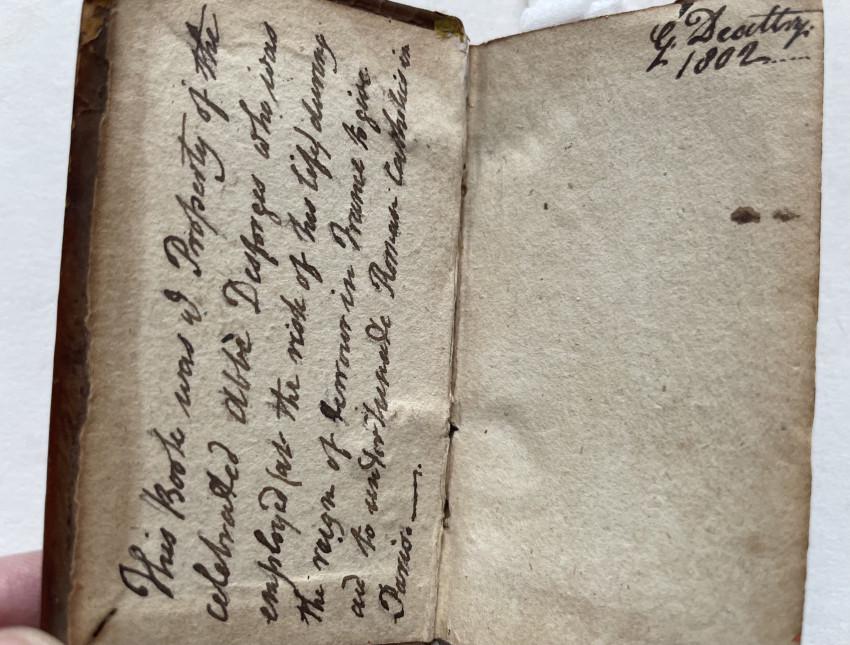 This Book was ye Property of the
celebrated Abbé Desforges who was
employ'd (at the risk of his life) during
the reign of terrour in France to give
aid to unfortunate Roman Catholics in
Paris. —
G. Dealtry.
1802